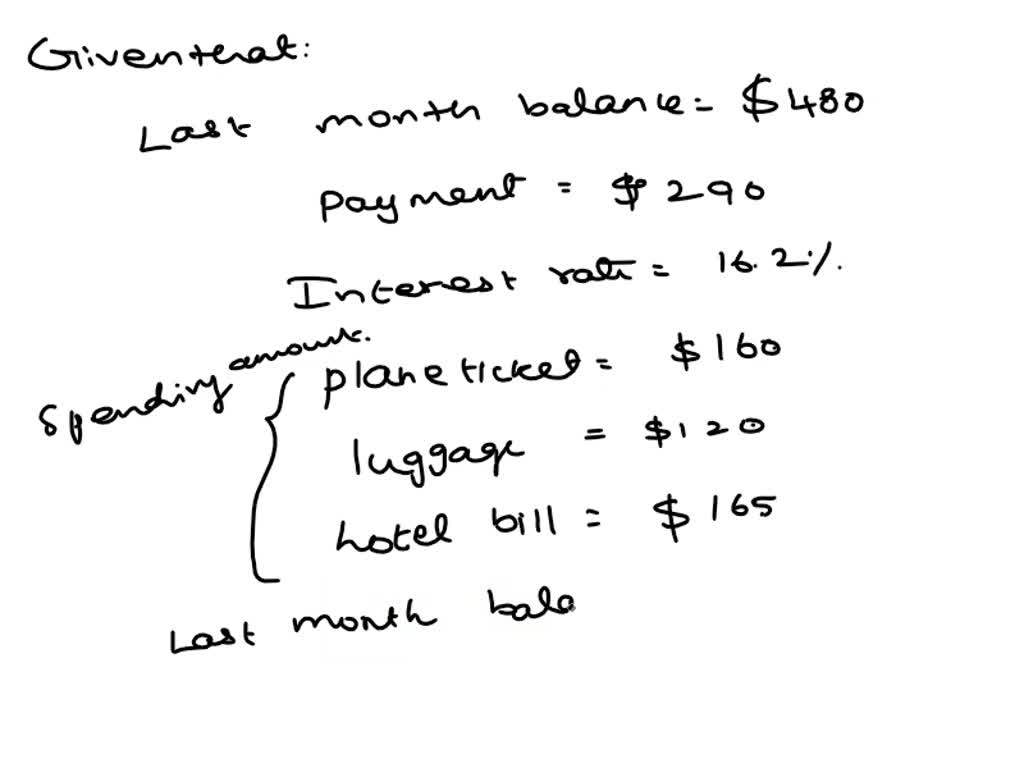 Given that:
Last month balance = $480
Payment = $290
Interest rate = 16.2%.
Spending amount.
plane ticket = $160
luggage = $120
hotel bill = $165
Last month bala